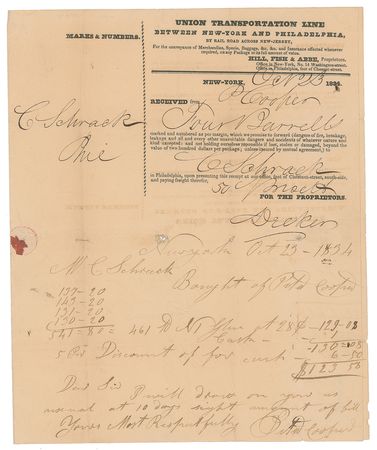 UNION TRANSPORTATION LINE
BETWEEN NEW-YORK AND PHILADELPHIA,
BY RAIL ROAD ACROSS NEW-JERSEY,
For the conveyance of Merchandize, Specie, Baggage, &c. &c. and Insurance effected whenever
required, on any Package to its full amount of value.
HILL, FISH & ABBE, Proprietors.
Office in New-York, No. 14 Washington-street.
Office in Philadelphia, foot of Chesnut street.
MARKS & NUMBERS.
NEW-YORK, Oct 23 1834.
P. Cooper
RECEIVED from
Four Barrels
C Schrack
Phie
marked and numbered as per margin, which we promise to forward (dangers of fire, breakage,
leakage and all and every other unavoidable dangers and accidents of whatever nature and
kind excepted; and not holding ourselves responsible if lost, stolen or damaged, beyond the
value of two hundred dollars per package; unless valued by mutual agreement,) to
C Schrack
in Philadelphia, upon presenting this receipt at our office, foot of Chesnut-street, south-side,
and paying freight therefor,
50
FOR THE PROPRIETORS.
Decker
New york Oct 23 - 1834
Mr C Schrack
Bought of Peter Cooper
137-20
143-20
131-20
130-20
541-80= 461 28¢ 129-08
Cash
130-08
5 Per Discount of for cash 6-50
$123 58
Dear Sir I will draw on you as
usual at 10 days sight amount of bill
Yours Most Respectfully Peter Cooper